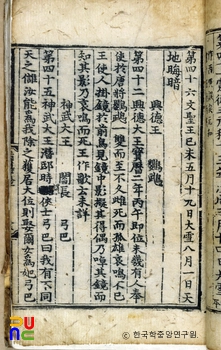 第四十六文聖王己未五月十九日大雪八月一日天
地晦暗
興德王 鸚鵡
第四十二興德大王寶曆二年丙午即位未幾有人奉
使於唐將鸚鵡一雙而至不久雌死而孤雄哀鳴不已
王使人掛鏡於前鳥見鏡中影擬其得偶乃啅其鏡而
知其影乃哀鳴而死王作歌云未詳
神武大王 閻長 弓巴
第四十五神武大王潛邸時謂俠士弓巴曰我有不同
天之讎汝能爲我除之獲居大位則娶爾女爲妃弓巴
ⓒ 한국학중앙연구원